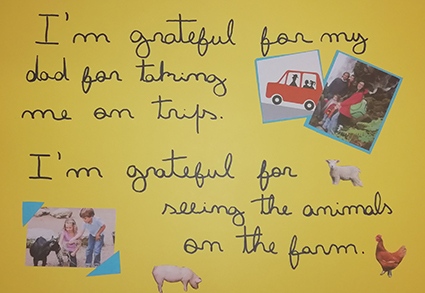 I'm grateful for my
dad for taking
me on trips.
I'm grateful for
seeing the animals
on the farm.